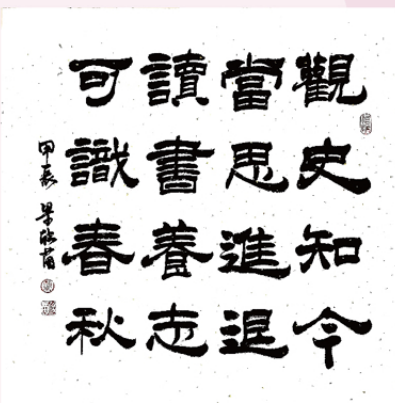 觀史知今
當思進退
讀書養志
可識春秋
甲辰